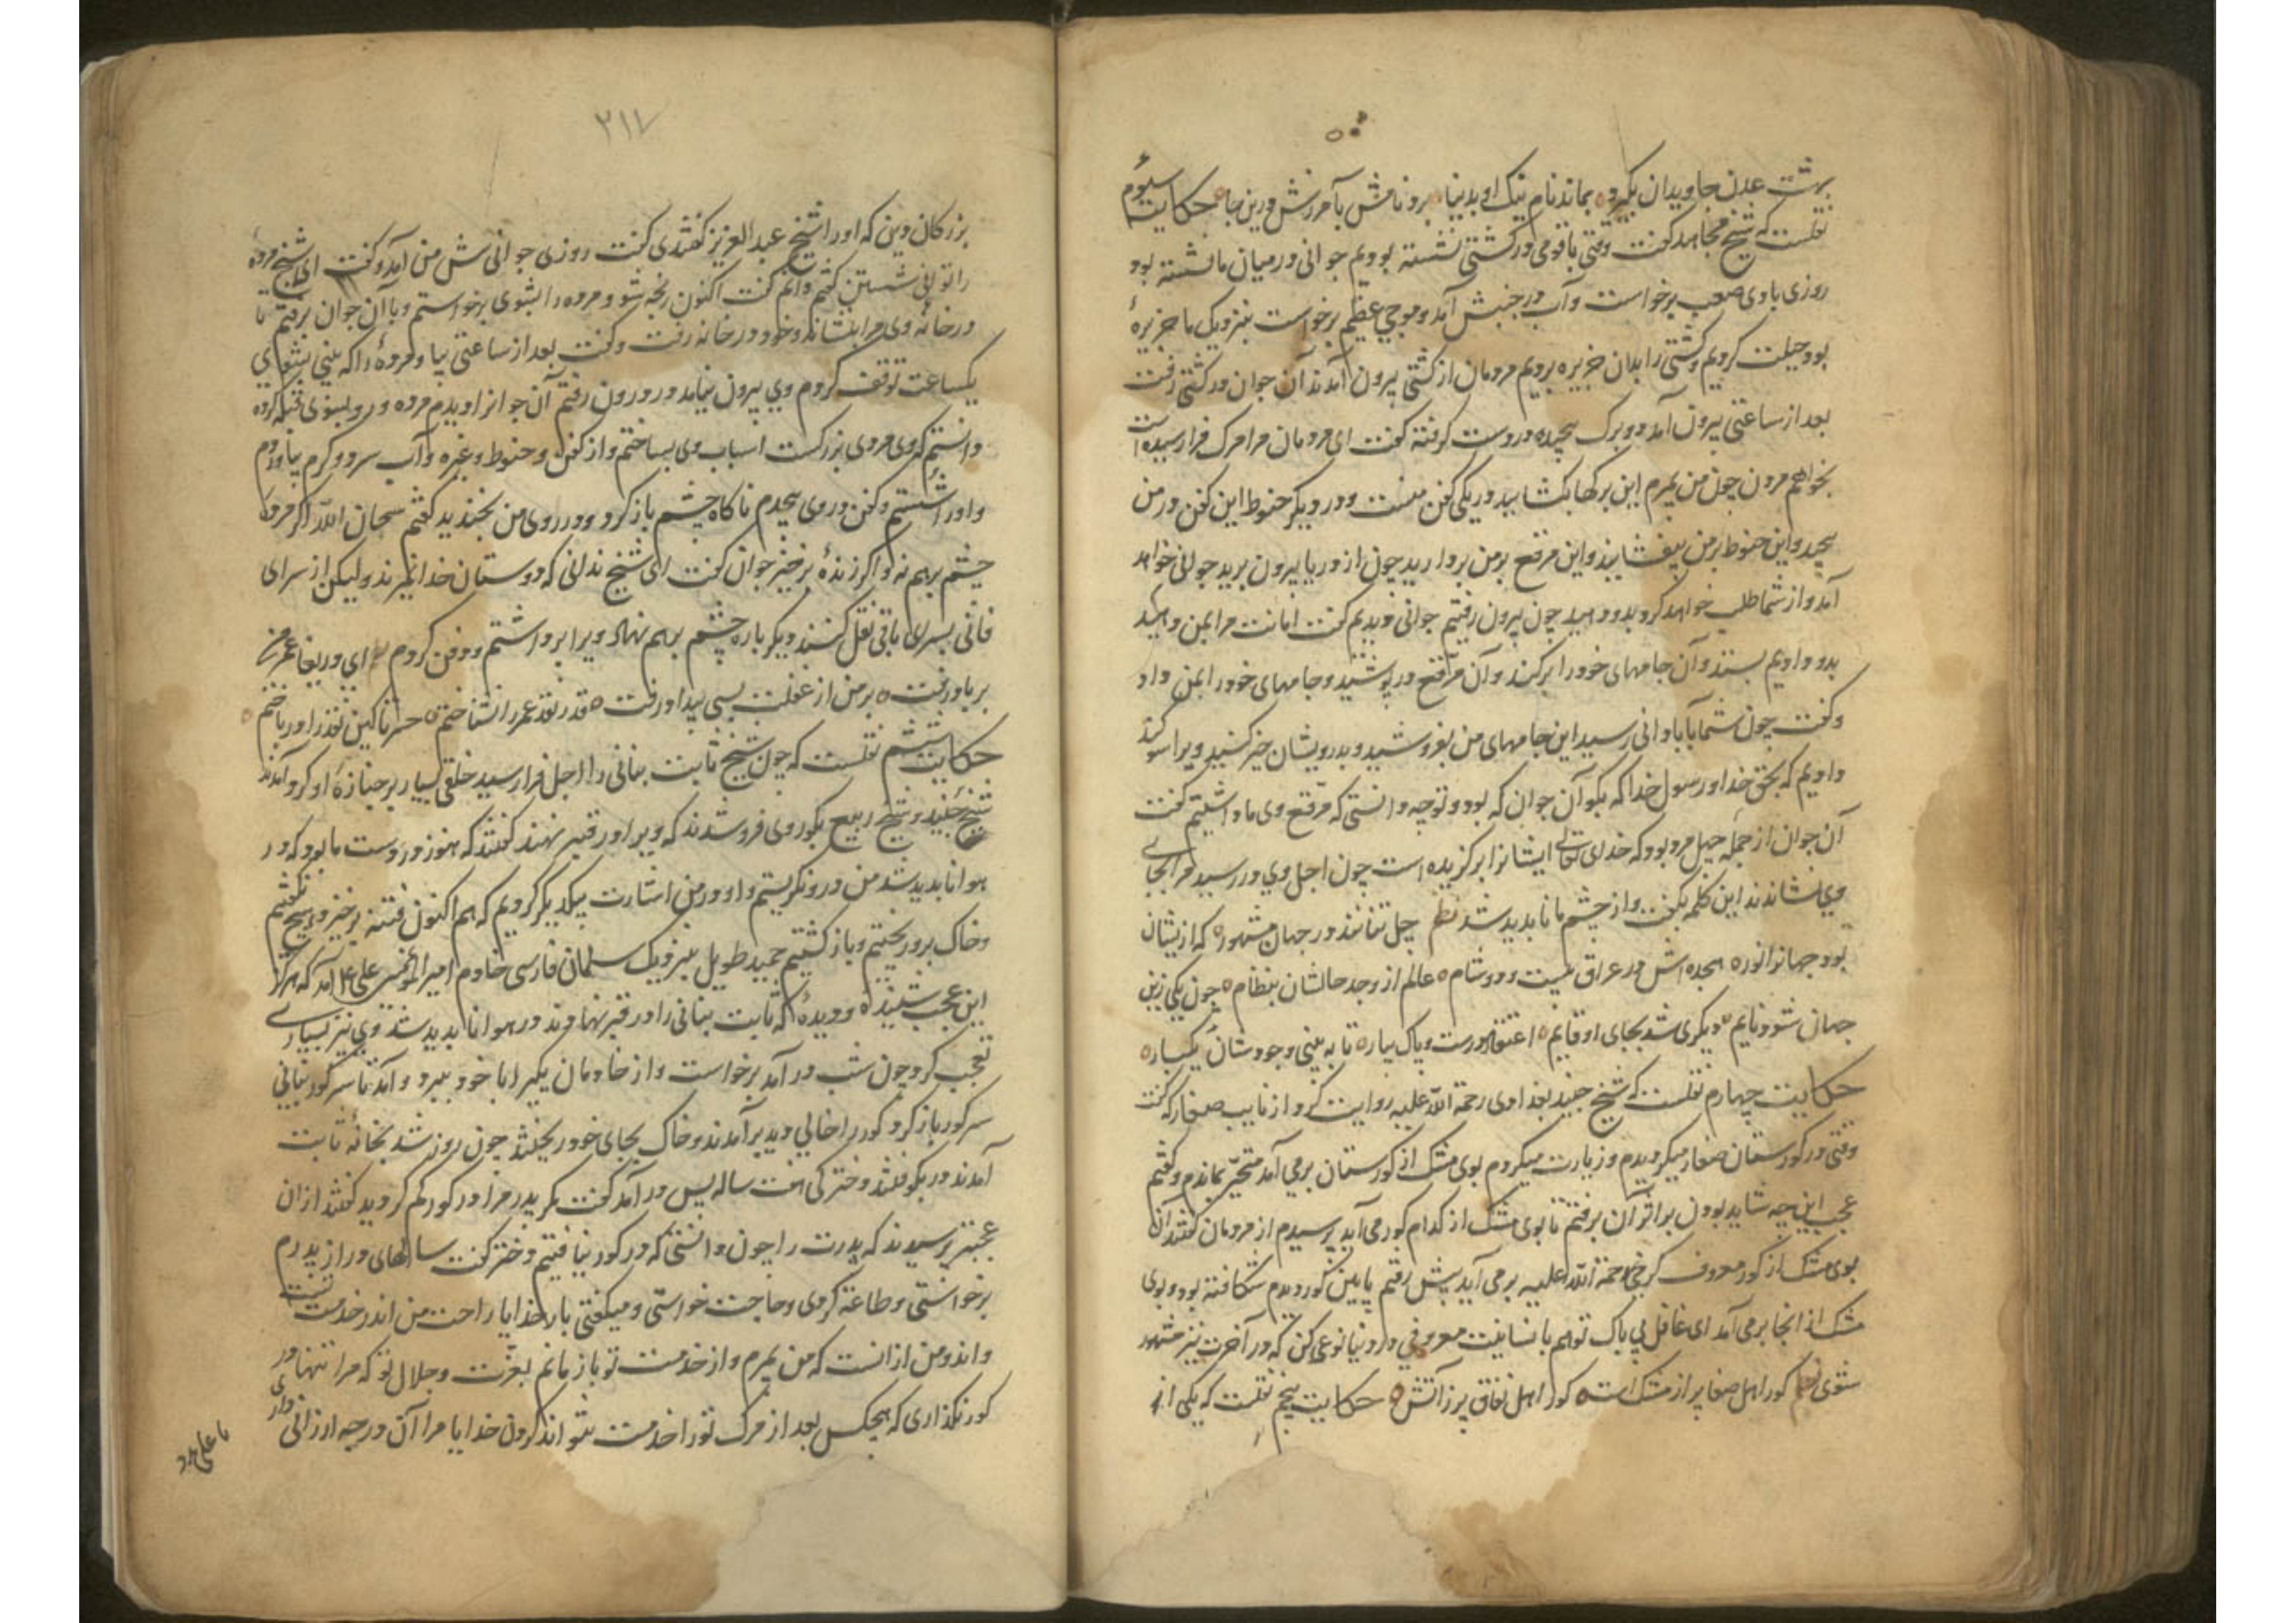 بهشت عدن جاویدان بگیرد بماند نام نیک او بدنیا برو نامش بآمرزش درین جا حکایت سیوم
نقلست که شیخ مجاهد گفت وقتی با قومی در کشتی نشسته بودیم جوانی در میان ما نشسته بود
روزی بادی صعب برخواست و آب در جنبش آمد و موجی عظیم برخواست بنزدیک ما جزیرهٔ
بود حیلت کردیم و کشتی را بدان جزیره بردیم مردمان از کشتی بیرون آمدند آن جوان در کشتی رفت
بعد از ساعتی بیرون آمد دو برک پیچیده در دست گرفته گفت ای مردمان مرا مرک فرا رسیده است
بخواهم مردن چون من بمیرم این برکها بکشایید در یکی کفن منست و در دیگر حنوط این کفن در من
پیچید و این حنوط بر من بیفشانید و این مرقع بر من بردارید چون از دریا بیرون برید جوانی خواهد
آمد و از شما طلب خواهد کرد بدو دهید چون بیرون رفتیم جوانی دیدیم گفت امانت مرا بمن دهید
بدو دادیم بستد و آن جامهای خود را برکند و آن مرقع در پوشید و جامهای خود را بمن داد
و گفت چون شما بآبادانی رسید این جامهای من بفروشید و بدرویشان خیر کنید ویرا سوگند
دادیم که بحق خدا و رسول خدا که بگو آن جوان که بود و تو چه دانستی که مرقع وی ما داشتیم گفت
آن جوان از جمله چهل مرد بود که خدای تعالی ایشانرا برگزیده است چون اجل وی در رسید مرا بجای
وی نشاندند این کلمه بگفت و از چشم ما نابدید شد نظم چل تنانند در جهان مشهور که ازیشان
بود جهانرا نور هجده اش در عراق بیست و دو شام عالم از وجد حالشان بنظام چون یکی زین
جهان شود نایم دیگری شد بجای او قایم اعتقاد درست و پاک بیار تا به بینی وجودشان یکبار
حکایت چهارم نقلست که شیخ جنید بغدادی رحمة الله علیه روایت کرد از نایب صفار که گفت
وقتی در گورستان صفار میگردیدم و زیارت میکردم بوی مشک از گورستان برمی آمد متحیر بماندم و گفتم
عجب این چه شاید بودن بر اثر آن برفتم تا بوی مشک از کدام گور می آید پرسیدم از مردمان گفتند آن
بوی مشک از گور معروف کرخی رحمة الله علیه برمی آید پیش رفتم پایین گور دیدم شکافته بود و بوی
مشک از انجا برمی آمد ای غافل بی باک تو هم با نسانیت معروفی در دنیا نوعی کن که در آخرت نیز مشهور
شوی نظم گور اهل صفا پر از مشک است گور اهل نفاق پر ز آتش حکایت پنجم نقلست که یکی از
۲۱۷
بزرگان دین که او را شیخ عبد العزیز گفتندی گفت روزی جوانی پیش من آمد و گفت ای شیخ مردهٔ
را توانی شستن گفتم دانم گفت اکنون رنجه شو و مرده را بشوی برخواستم و با آن جوان برفتم تا
در خانهٔ وی مرا بنشاند و خود در خانه رفت و گفت بعد از ساعتی بیا و مردهٔ را که بینی بشوی
یکساعت توقف کردم وی بیرون نیامد در درون رفتم آن جوانرا دیدم مرده و رو بسوی قبله کرده
دانستم که وی مردی بزرکست اسباب وی بساختم و از کفن و حنوط و غیره و آب سرد و گرم بیاوردم
و او را شستم و کفن در وی پیچیدم ناگاه چشم باز کرد و در روی من بخندید گفتم سبحان الله اگر مردهٔ
چشم برهم نه و اگر زندهٔ برخیز جوان گفت ای شیخ ندانی که دوستان خدا نمیرند ولیکن از سرای
فانی بسرای باقی نقل کنند دیگر باره چشم برهم نهاد ویرا برداشتم و دفن کردم ای دریغا عمر من
بر باد رفت بر من از غفلت بسی بیداد رفت قدر نقد عمر را نشناختم حسرتا کین نقد را در باختم
حکایت ششم نقلست که چون شیخ ثابت بنانی را اجل فرا رسید خلقی بسیار بر جنازهٔ او گرد آمدند
شیخ جنید و شیخ ربیع بگور وی فرو شدند که ویرا در قبر نهند گفتند که هنوز در دست ما بود که در
هوا نابدید شد من درو نگریستم و او در من اشارت بیکدیگر کردیم که هم اکنون فتنه برخیزد هیچ نگفتیم
و خاک برو ریختیم و باز گشتیم حمید طویل بنزدیک سلمان فارسی خادم امیر المؤمنین علی آمد که هرگز
این عجب شنیدهٔ و دیدهٔ که ثابت بنانی را در قبر نهادند در هوا نابدید شد وی نیز بسیاری
تعجب کرد چون شب در آمد برخواست و از خادمان یکیرا با خود ببرد و آمد تا سر گور بنانی
سر گور باز کرد گور را خالی دید بر آمدند و خاک بجای خود ریختند چون روز شد بخانهٔ ثابت
آمدند در بکوفتند دخترکی هفت ساله پس در آمد گفت مگر پدر مرا در گور گم کردید گفتند از ان
عجبتر پرسیدند که پدرت را چون دانستی که در گور نیافتیم دختر گفت سالهای دراز پدرم
برخواستی و طاعت کردی و حاجت خواستی و میگفتی بار خدایا راحت من اندر خدمت تست
و اندوه من از انست که من بمیرم و از خدمت تو باز مانم بعزت و جلال تو که مرا تنها در
گور نگذاری که هیچکس بعد از مرک تو را خدمت نتواند کردن خدایا مرا آن درجه ارزانی داری